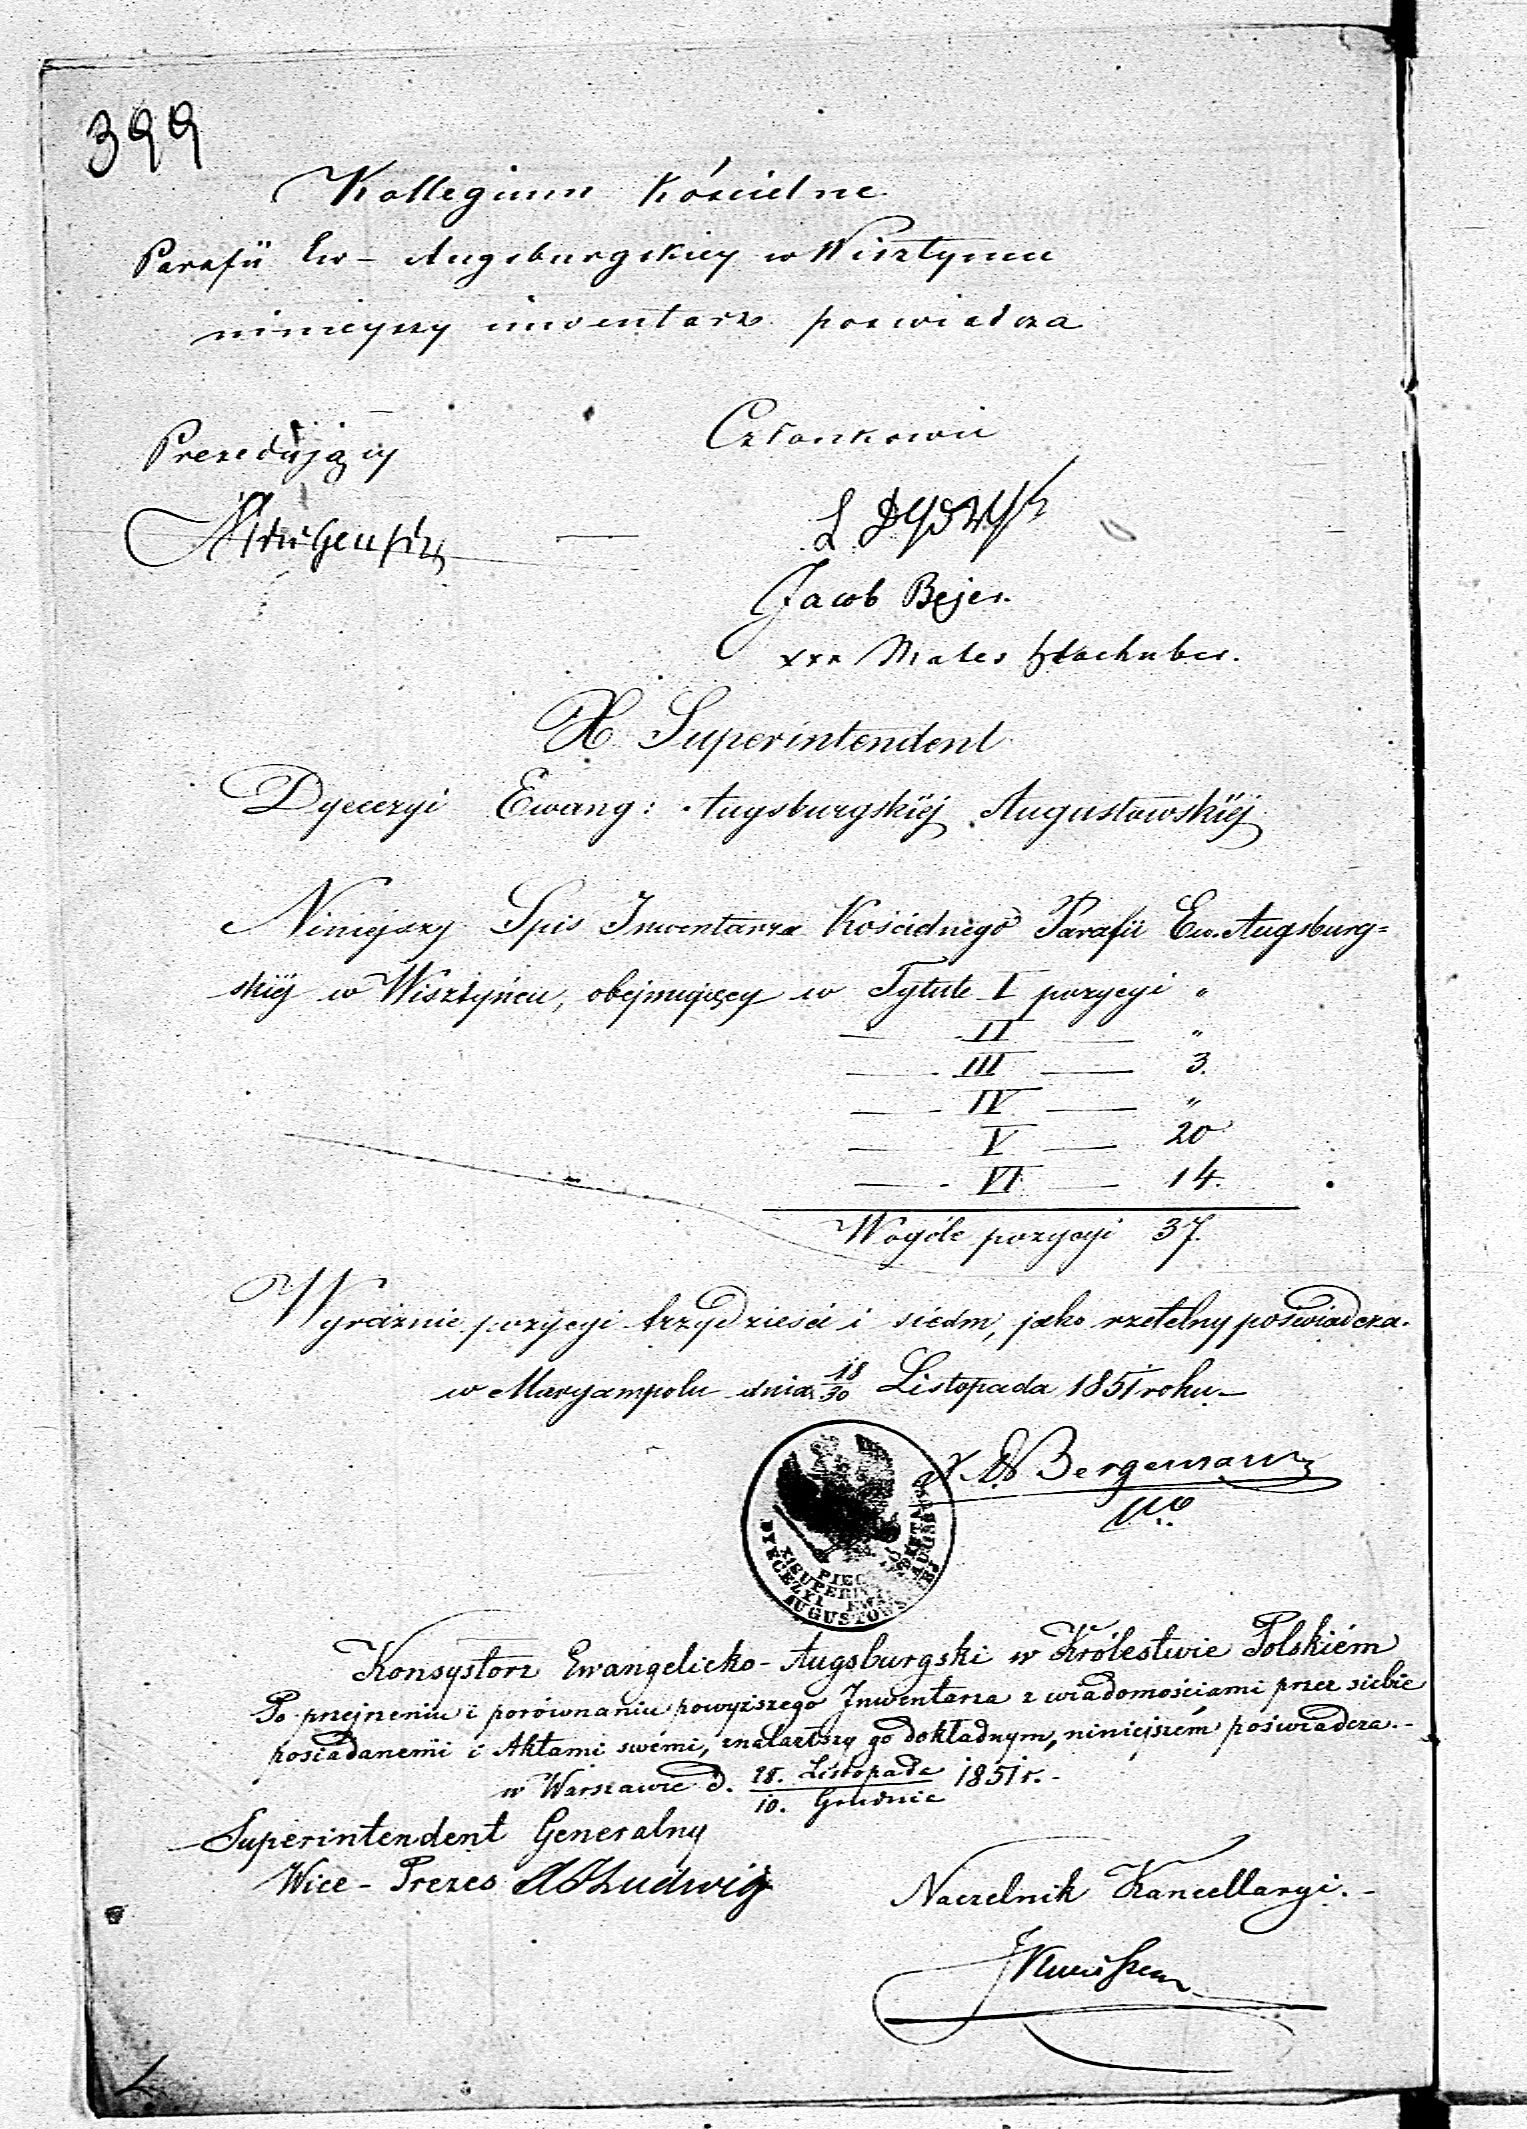 399
Kollegium Kościelne
Parafii Ew- Augsburgskiey w Wisztyncu
ninieyszy inwentarz poswiadcza
Prezedujący
Członkowie
L Dydzyk
Jacob Bejer.
xxx Mates
X. Superintendent
Dyecezyi Ewang: Augsburgskiéj Augustowskiéj
Niniejszy Spis Inwentarza Kościelnego Parafii Ew. Augsburg=
skiéj w Wisztyńcu, obejmujący w Tytule I pozycyi "
— II — "
— III — 3.
— IV — "
— V — 20
— VI — 14.
Wogóle pozycyi 37.
Wyraźnie pozycyi trzydzieści i siedm, jako rzetelny poświadcza.
w Maryampolu dnia 18/30 Listopada 1851 roku.—
X. Bergemann
PIECZ
X. SUPERINTENDENTA
DYECEZYI EWA AUGSBUR
AUGUSTOWSKIEJ
Konsystorz Ewangelicko-Augsburgski w Królestwie Polskiém
Po przejrzeniu i porównaniu powyższego Inwentarza z wiadomościami przez siebie
posiadanemi i Aktami swémi, znalazłszy go dokładnym, niniejszém poświadcza.-
w Warszawie d. 28. Listopada / 10. Grudnia 1851 r.-
Superintendent Generalny
Wice-Prezes Ludwig
Naczelnik Kancellaryi.-